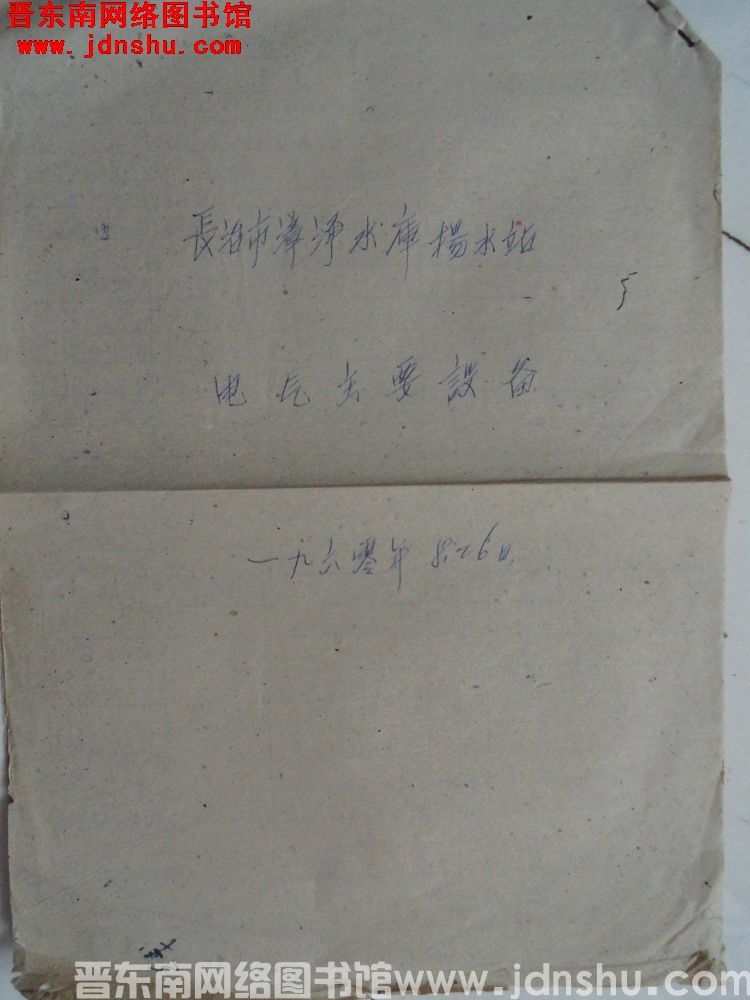 晋东南网络图书馆
www.jdnshu.com
長治市漳泽水库揚水站
电气主要設备
一九六零年
晋东南网络图书馆www.jdnshu.com